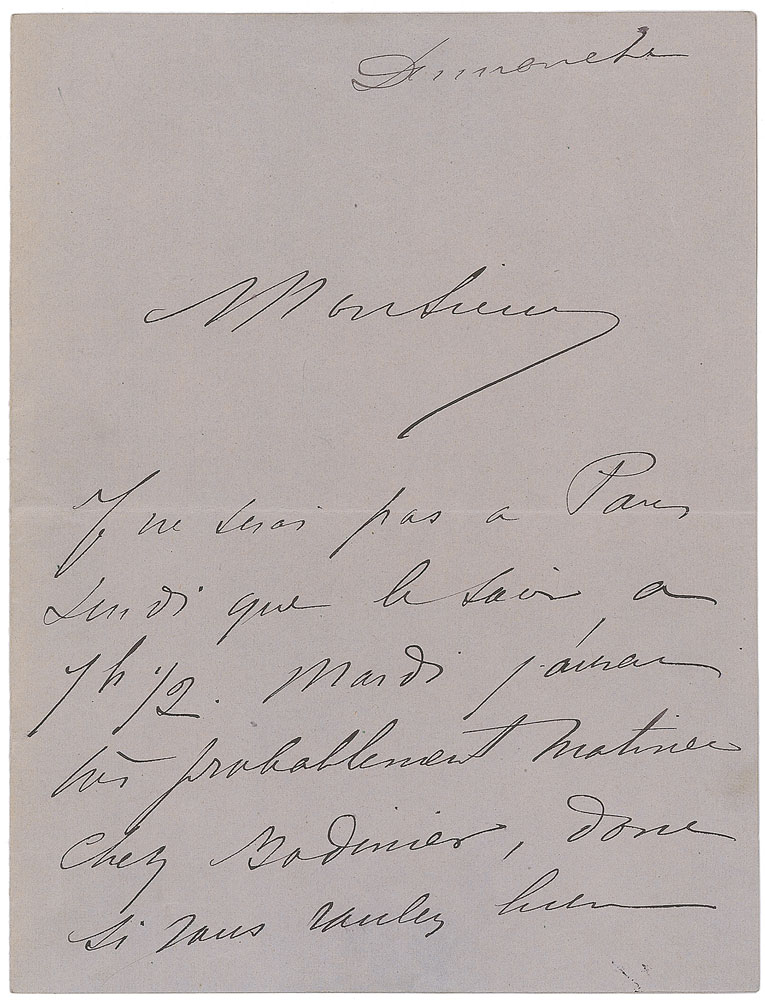 Dimanche
Monsieur
Je ne serai pas a Paris
Lundi que le soir, a
7h 1/2. Mardi j'aurai
très probablement Matinée
chez Bodinier, donc
si vous voulez bien